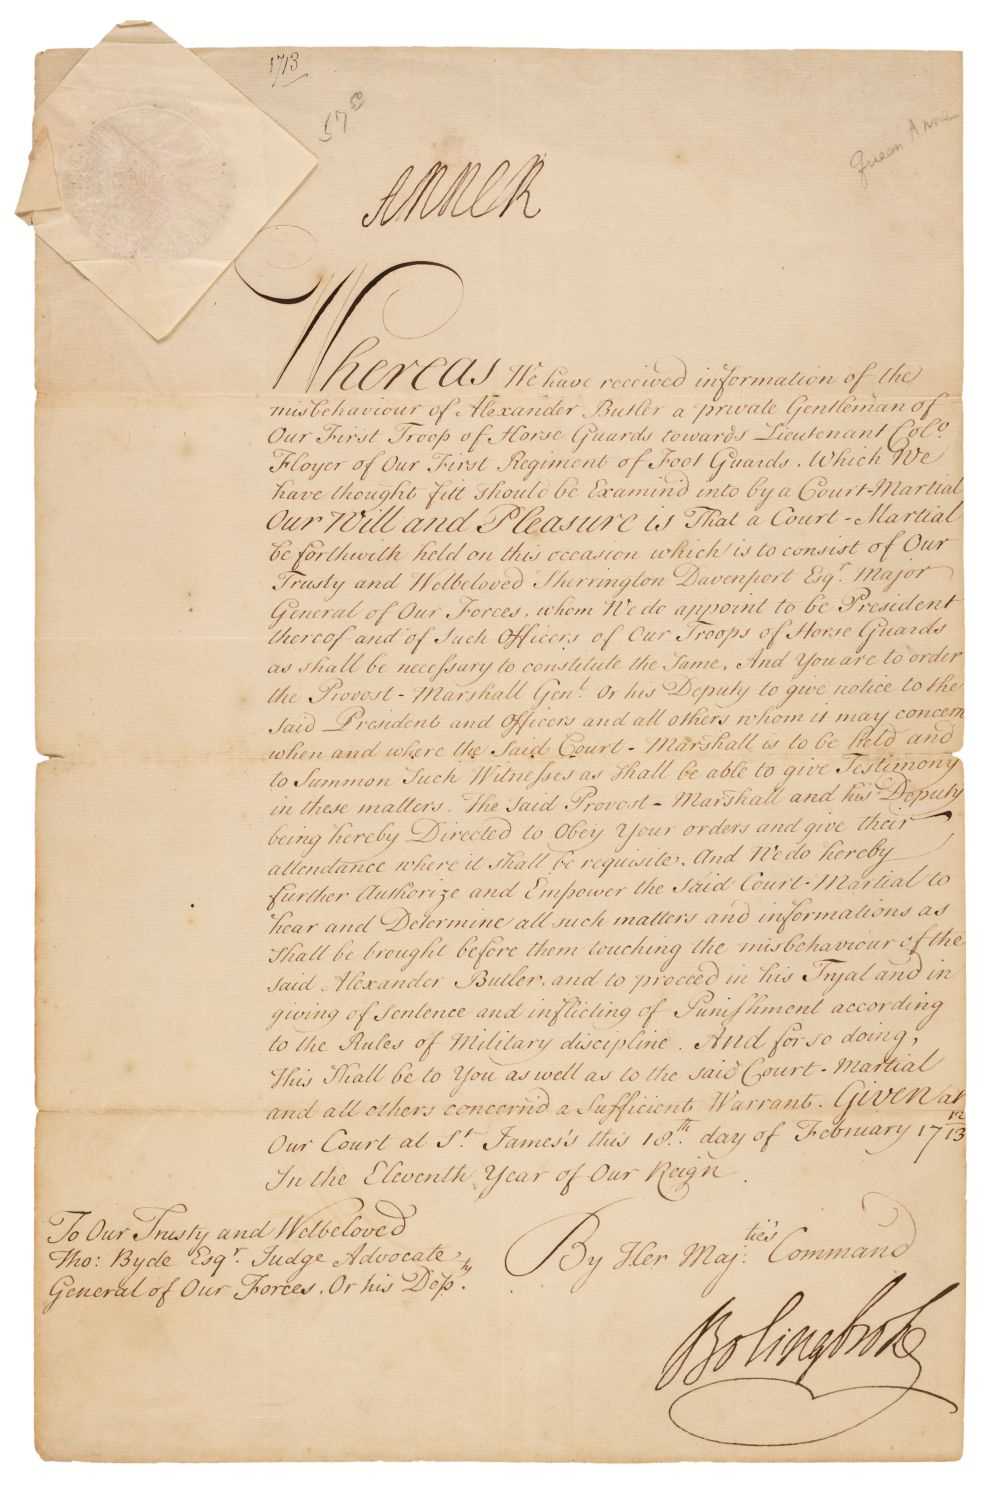 1713
Queen Anne
ANNE R
Whereas We have received information of the
misbehaviour of Alexander Butler a private Gentleman of
Our First Troop of Horse Guards towards Lieutenant Colo.
Floyer of Our First Regiment of Foot Guards. Which We
have thought fitt should be Examin'd into by a Court-Martial
Our Will and Pleasure is That a Court-Martial
be forthwith held on this occasion which is to consist of Our
Trusty and Welbeloved Sherrington Davenport Esqr. Major
General of Our Forces, whom We do appoint to be President
thereof and of such Officers of Our Troops of Horse Guards
as shall be necessary to constitute the same, And You are to order
the Provost-Marshall Genl. Or his Deputy to give notice to the
said President and Officers and all others whom it may concern
when and where the Said Court-Marshall is to be held and
to Summon Such Witnesses as shall be able to give Testimony
in these matters. The Said Provost-Marshall and his Deputy
being hereby Directed to Obey Your orders and give their
attendance where it shall be requisite. And We do hereby
further Authorize and Empower the Said Court-Martial to
hear and Determine all such matters and informations as
shall be brought before them touching the misbehaviour of the
said Alexander Butler. and to proceed in his Tryal and in
giving of Sentence and inflicting of Punishment according
to the Rules of Military discipline. And for so doing,
This Shall be to You as well as to the said Court-Martial
and all others concern'd a Sufficient Warrant. Given at
Our Court at St. James's this 18th. day of February 17 12/13
In the Eleventh Year of Our Reign.
To Our Trusty and Welbeloved
Tho: Byde Esqr. Judge Advocate
General of Our Forces. Or his Depty.
By Her Maj:ties Command
Bolingbroke